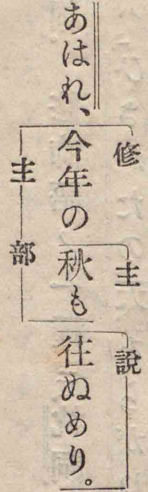 あはれ、今年の秋も往ぬめり。
修
主
說
主部